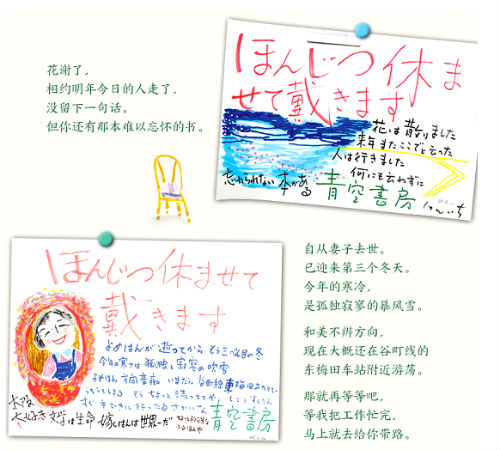 花谢了，
相约明年今日的人走了，
没留下一句话。
但你还有那本难以忘怀的书。
ほんじつ休ま
せて戴きます
花は散りました
来年またここでと云った
人は行きました
何にも云わずに
忘れられない本がある
青空書房
けんいち
ほんじつ休ませて
戴きます
よめはんが逝ってから もう三べん目の冬
今年の寒さは孤独と寂寥の吹雪
よめはん方向音痴 いまだに谷町線東梅田あたりで
うろうろしてる もうちょっと待っててや
すぐ手びきに行ったるさかいな
大好き文学は生命 嫁はんは世界一だ
青空書房
自从妻子去世。
已迎来第三个冬天。
今年的寒冷，
是孤独寂寥的暴风雪。
和美不辨方向，
现在大概还在谷町线的
东梅田车站附近游荡。
那就再等等吧，
等我把工作忙完，
马上就去给你带路。